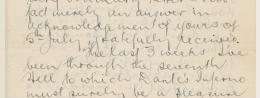 fact merely an answer in
acknowledgement of yours of
5th July, gratefully received
The last 3 weeks I've
been through the seventh
Hell to which Dante's Inferno
must surely be a pleasure